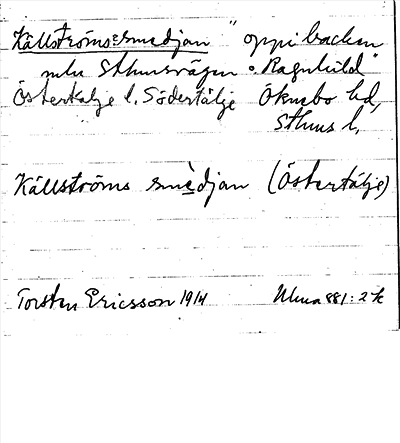 Källströms-smedjan "oppi backen
mln Sthmsvägen o. Ragnhild"
Östertälje l. Södertälje Öknebo hd,
Sthms l.
Källströms smèdjan (Östertälje)
Torsten Ericsson 1914 Ulma 881:2 k